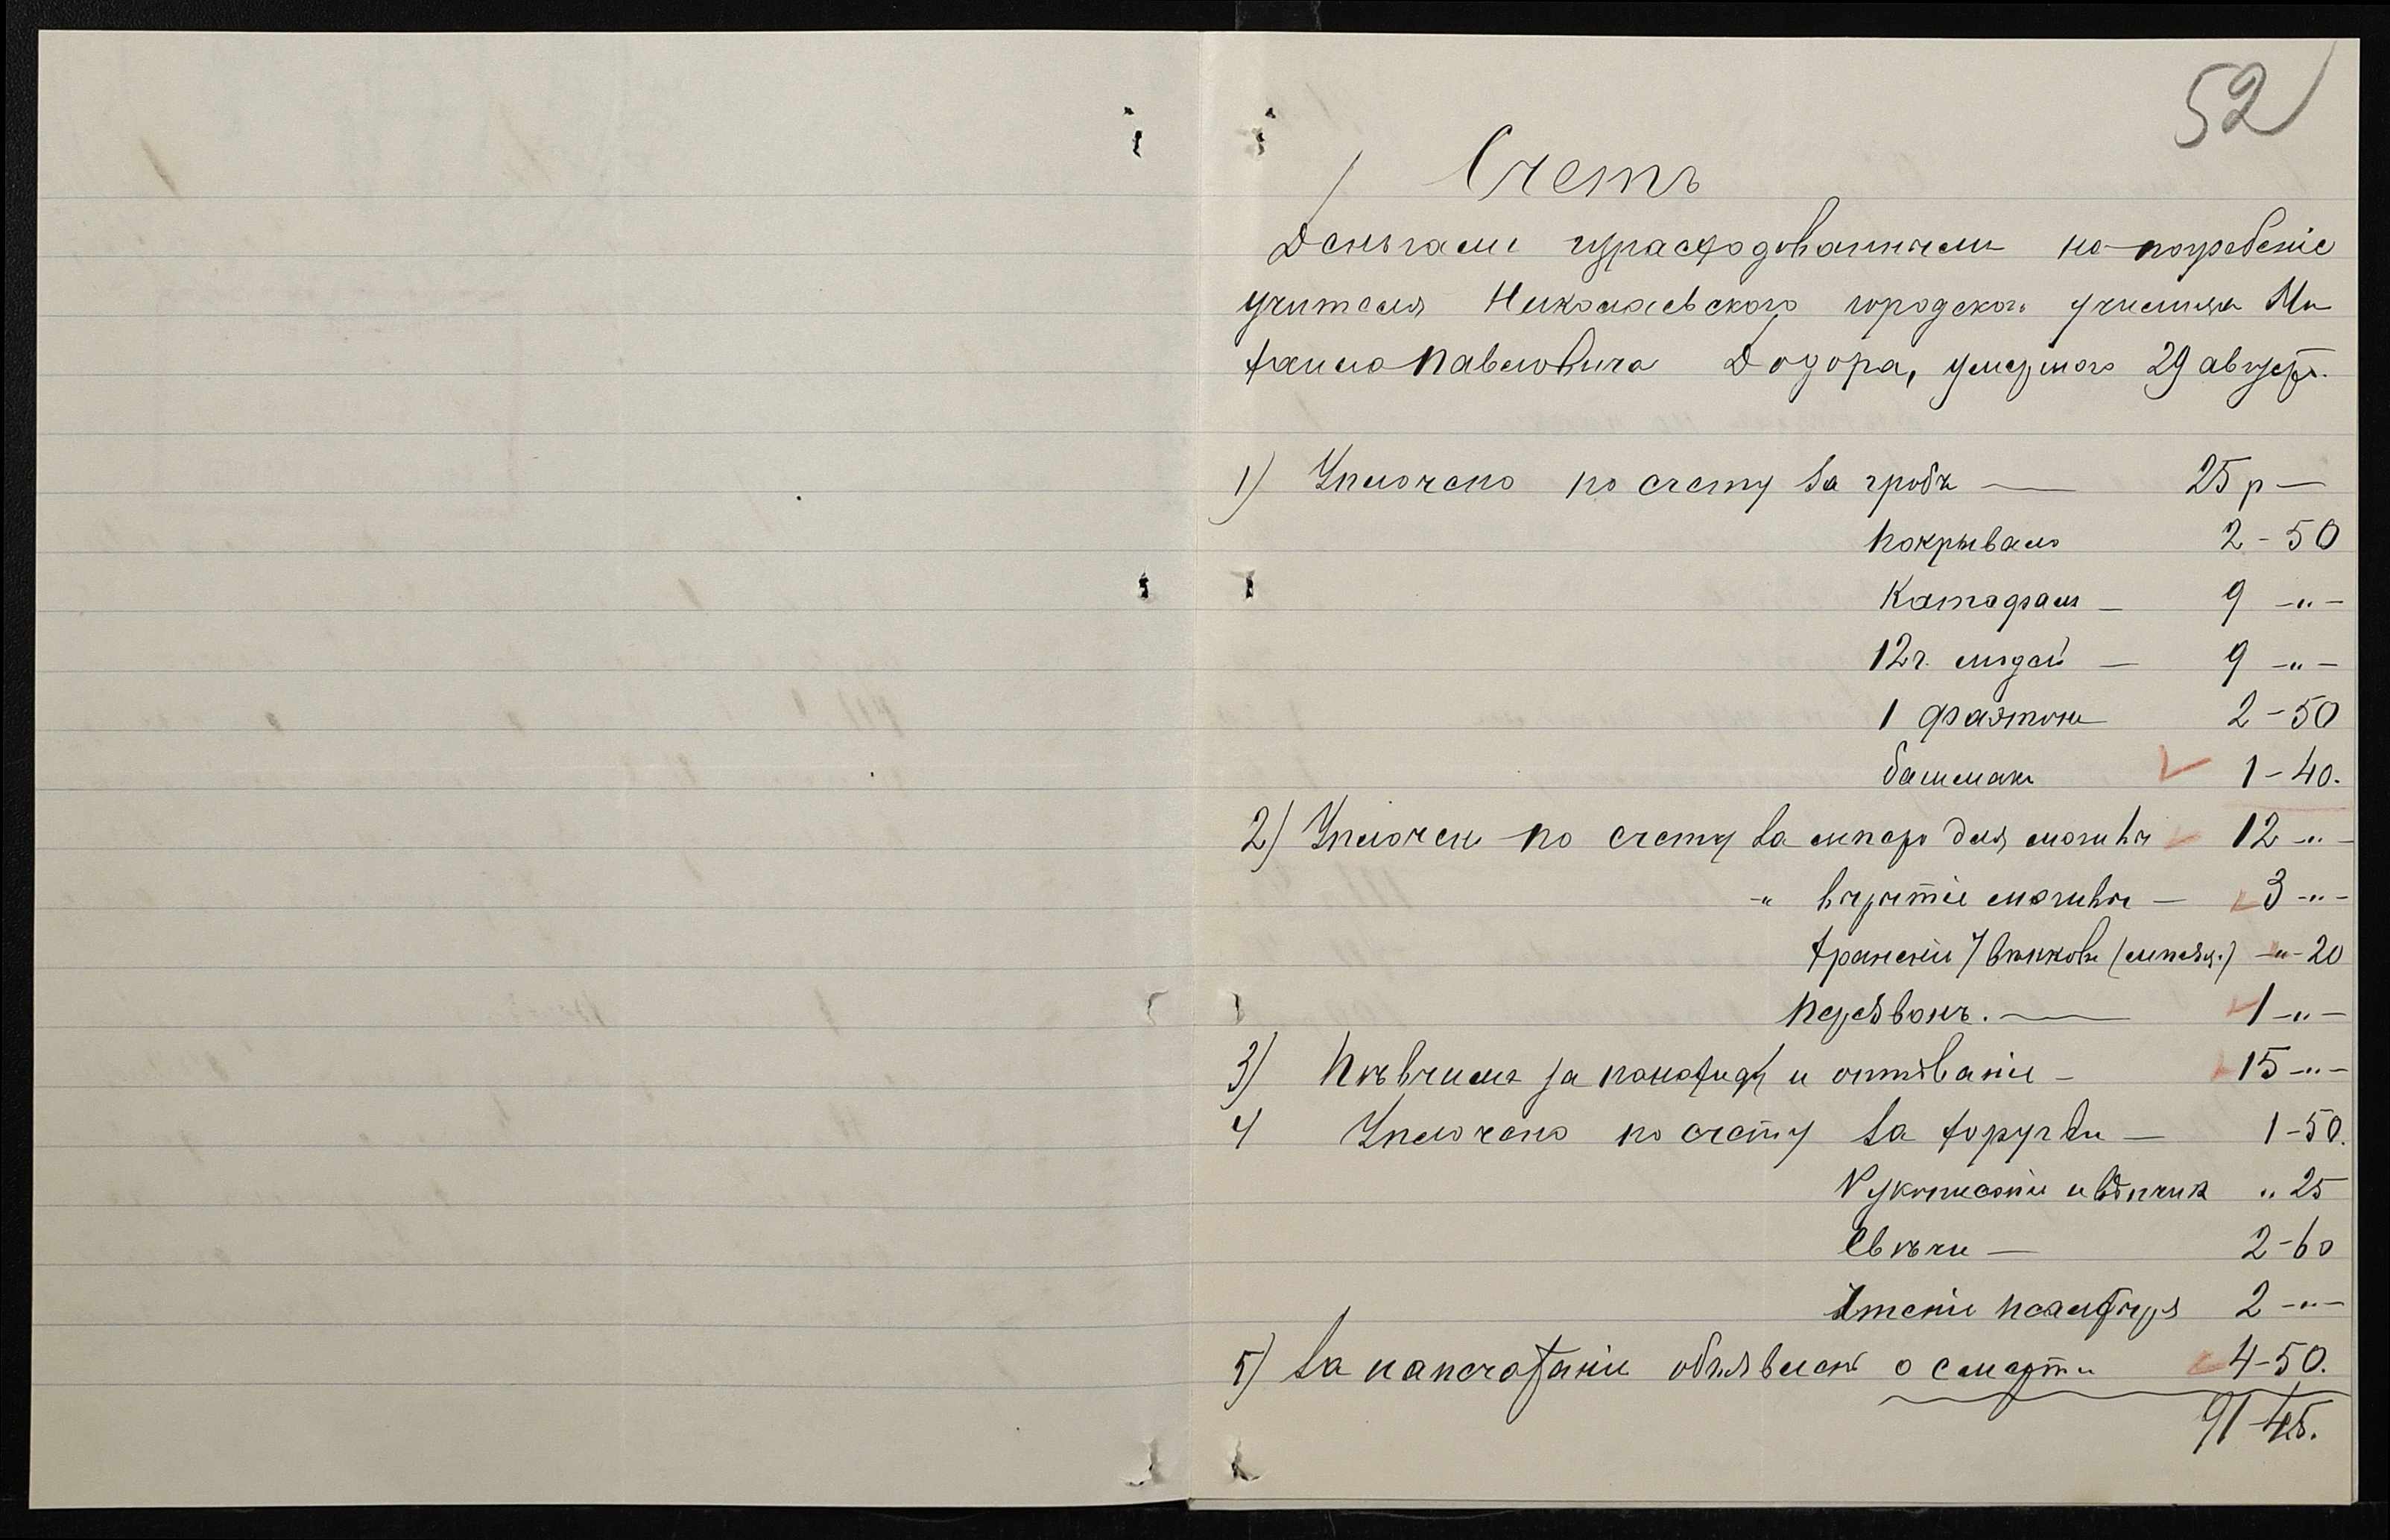 52
Счетъ
Деньгами израсходованными на погребеніе
учителя Николаевскаго городскаго училища Ми
хаила Павловича Додора, умершаго 29 август.
1) Уплочено по счету за гробъ — 25 р —
Покрывало 2 - 50
Катафалк — 9 -"-
12 ч. людей — 9 -"-
1 фаэтонъ 2 - 50
башмаки 1 - 40.
2) Уплочен по счету за мѣсто для могилы 12 -"-
-" вырытіе могилы — 3 -"-
храненіи 7 вѣнковъ -"- 20
Перезвонъ. — 1 -"-
3) Пѣвчимъ за панахиду и отпѣваніе - 15 -"-
4 Уплочено по счету за хоругви — 1 - 50.
Рукописаніи и вѣнчик " 25
Свѣчи — 2 - 60
Чтеніи псалтыря 2 -"-
5) За напечатаніи объявлені о смерти 4 - 50.
91 - 45.